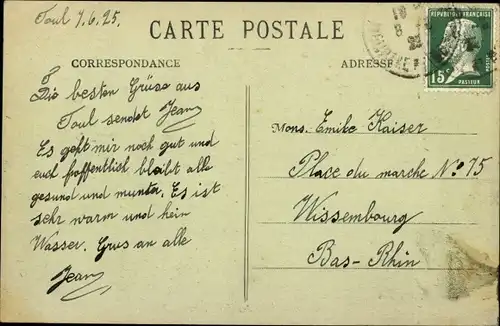 Toul 7.6.25.
CARTE POSTALE
CORRESPONDANCE
ADRESSE
RÉPUBLIQUE FRANÇAISE
POSTES
15c
PASTEUR
Die besten Grüse aus
Toul sendet Jean
Es geht mir noch gut und
euch hoffentlich bleibt alle
gesund und munter. Es ist
sehr warm und kein
Wasser. Grus an alle
Jean
Mons. Emile Kaiser
Place du marche No 75
Wissembourg
Bas-Rhin